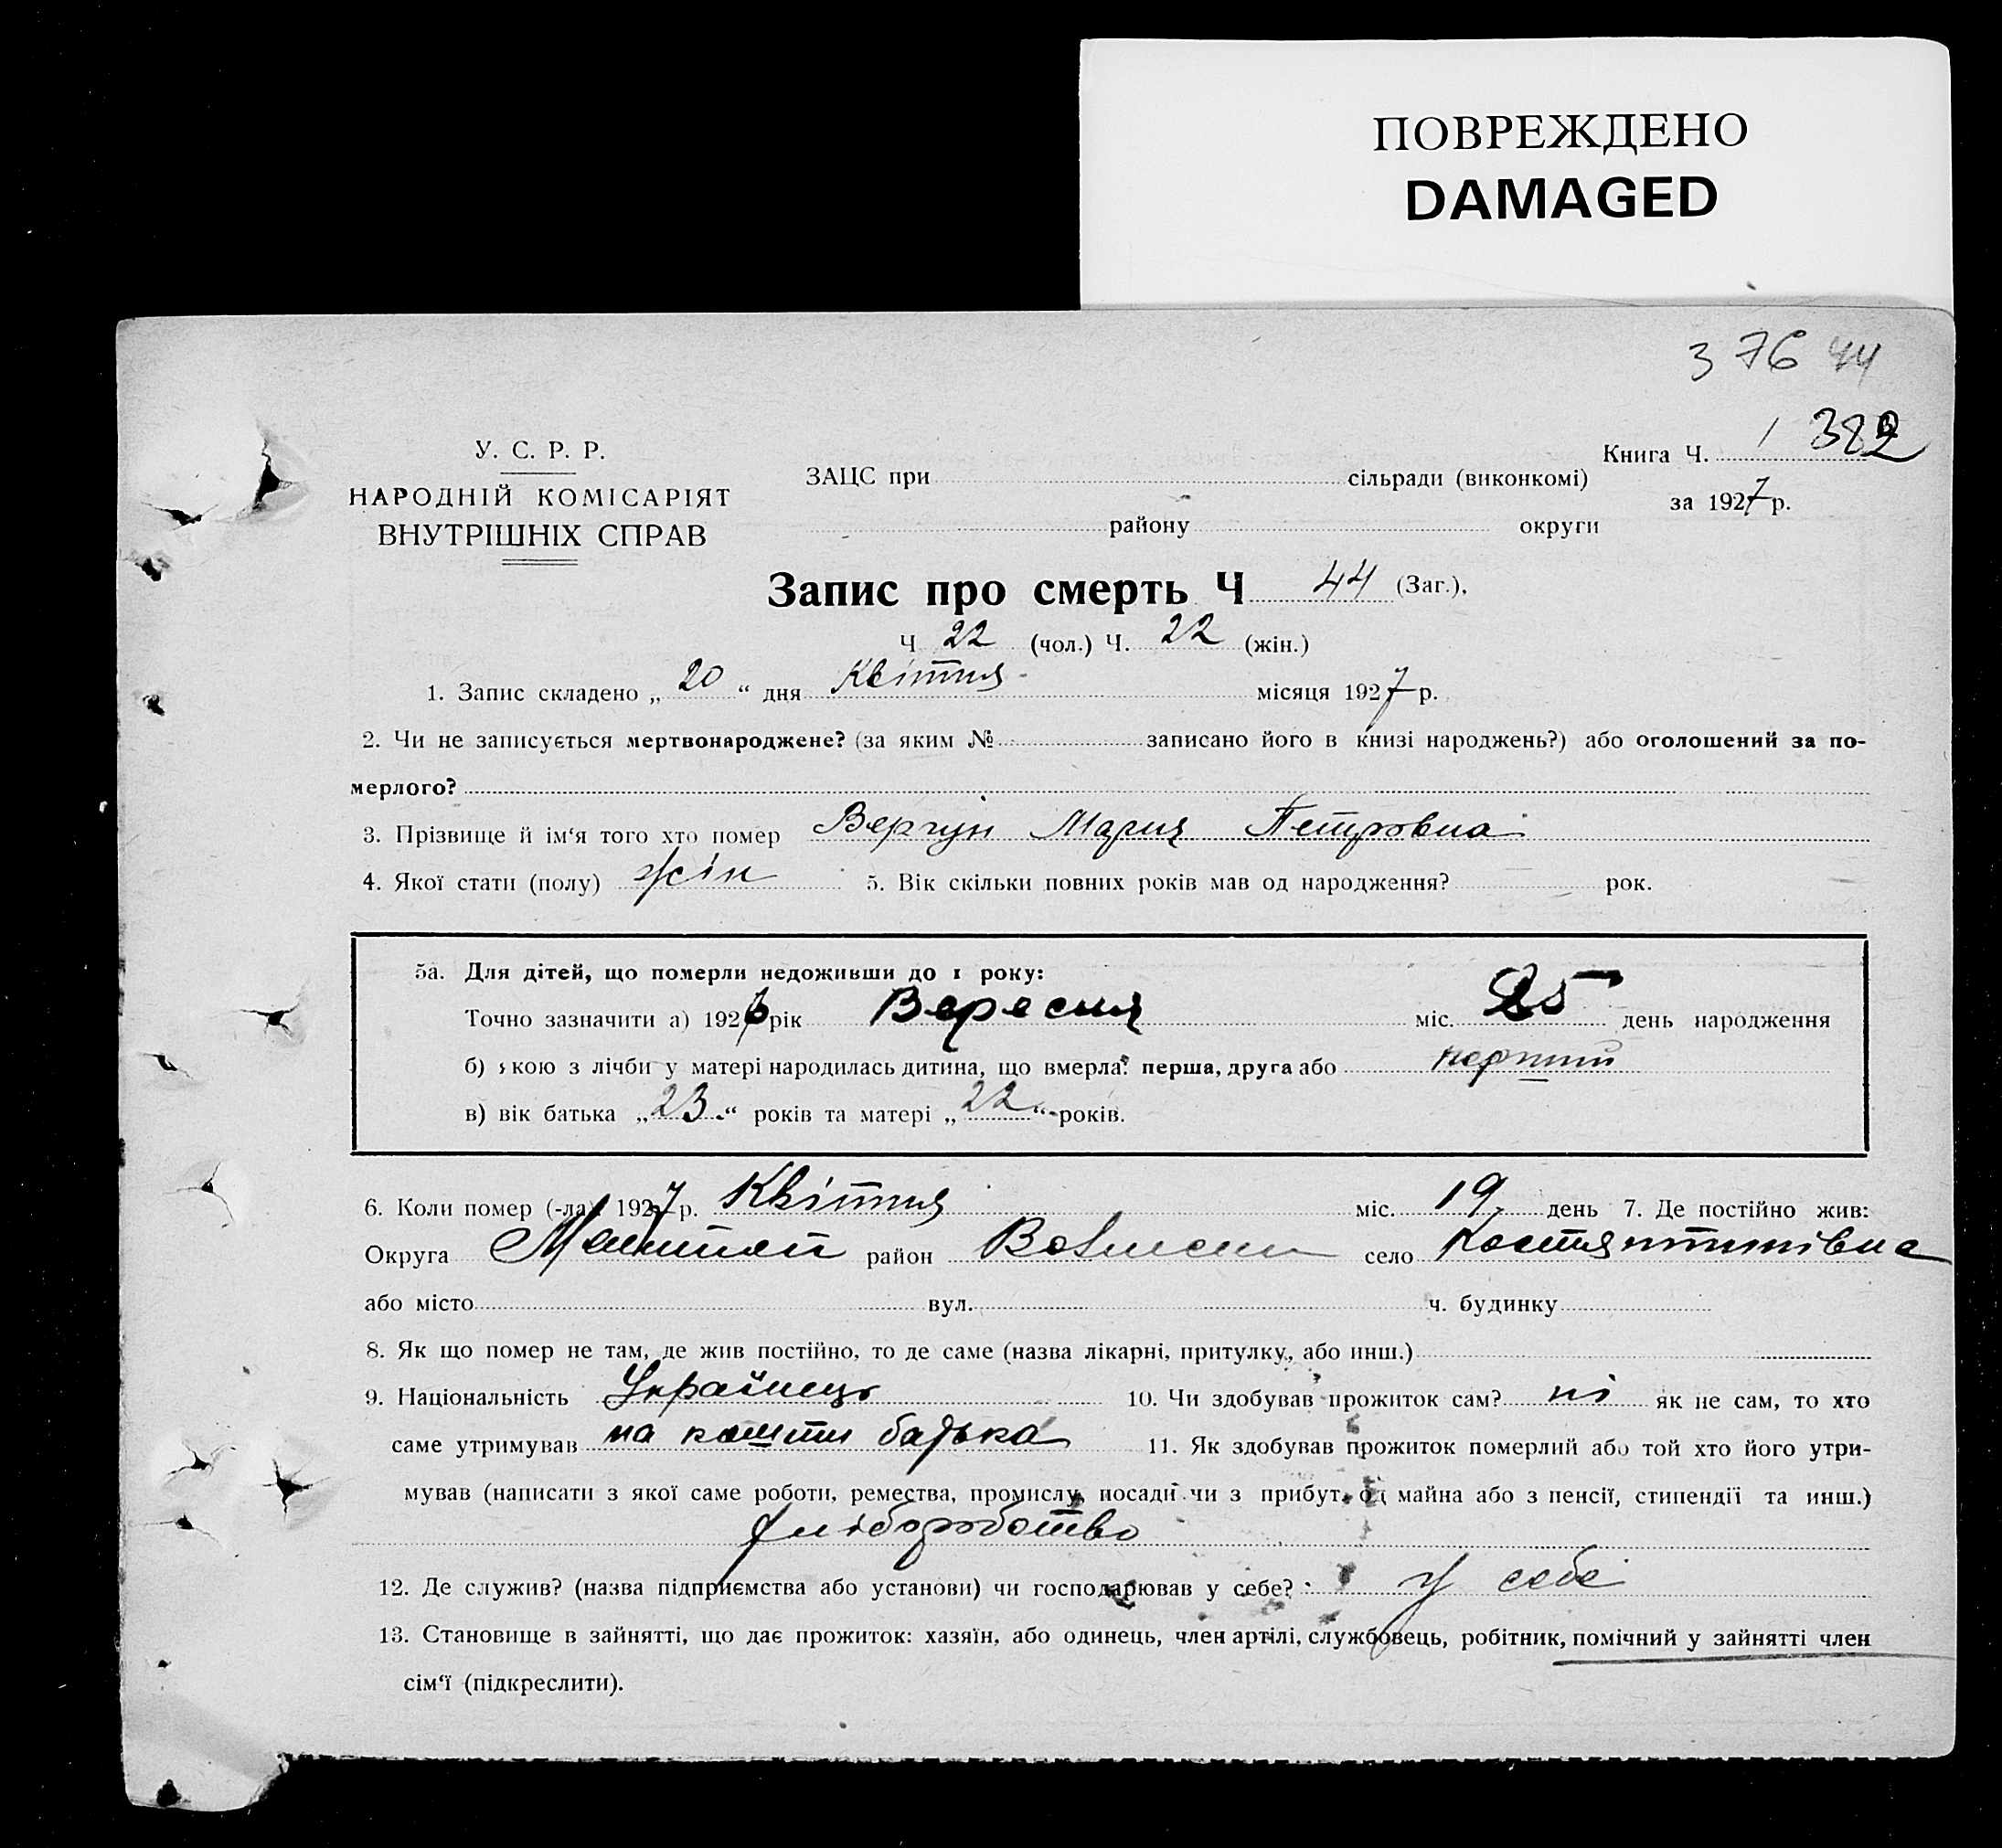 ПОВРЕЖДЕНО
DAMAGED
3 76 44
У. С. Р. Р.
НАРОДНІЙ КОМІСАРІЯТ
ВНУТРІШНІХ СПРАВ
ЗАЦС при сільради (виконкомі)
району округи
Книга Ч. 1 382
за 1927 р.
Запис про смерть Ч 44 (Заг.).
Ч 22 (чол.) Ч. 22 (жін.)
1. Запис складено „ 20 “ дня Квітня місяця 1927 р.
2. Чи не записується мертвонароджене? (за яким № записано його в книзі народжень?) або оголошений за по-
мерлого?
3. Прізвище й ім‘я того хто помер Вергун Мария Петровна
4. Якої стати (полу) жін 5. Вік скільки повних років мав од народження? рок.
5а. Для дітей, що померли недоживши до 1 року:
Точно зазначити а) 1926 рік Вересня міс. 25 день народження
б) якою з лічби у матері народилась дитина, що вмерла? перша, друга або перший
в) вік батька „ 23 “ років та матері „ 22 “ років.
6. Коли помер (-ла) 1927 р. Квітня міс. 19 день 7. Де постійно жив:
Округа район село Костянтинівна
або місто вул. ч. будинку
8. Як що помер не там, де жив постійно, то де саме (назва лікарні, притулку, або инш.)
9. Національність Українець 10. Чи здобував прожиток сам? ні як не сам, то хто
саме утримував на кошти батька 11. Як здобував прожиток померлий або той хто його утри-
мував (написати з якої саме роботи, ремества, промислу, посади чи з прибут. од майна або з пенсії, стипендії та инш.)
хліборобство
12. Де служив? (назва підприємства або установи) чи господарював у себе? у себе
13. Становище в зайнятті, що дає прожиток: хазяїн, або одинець, член артілі, службовець, робітник, помічний у зайнятті член
сім‘ї (підкреслити).